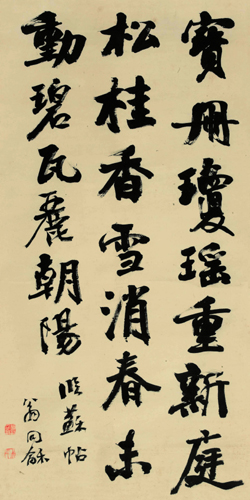 寶冊瓊瑤重新庭
松桂香雪消春未
動碧瓦麗朝陽
臨蘇帖
翁同龢